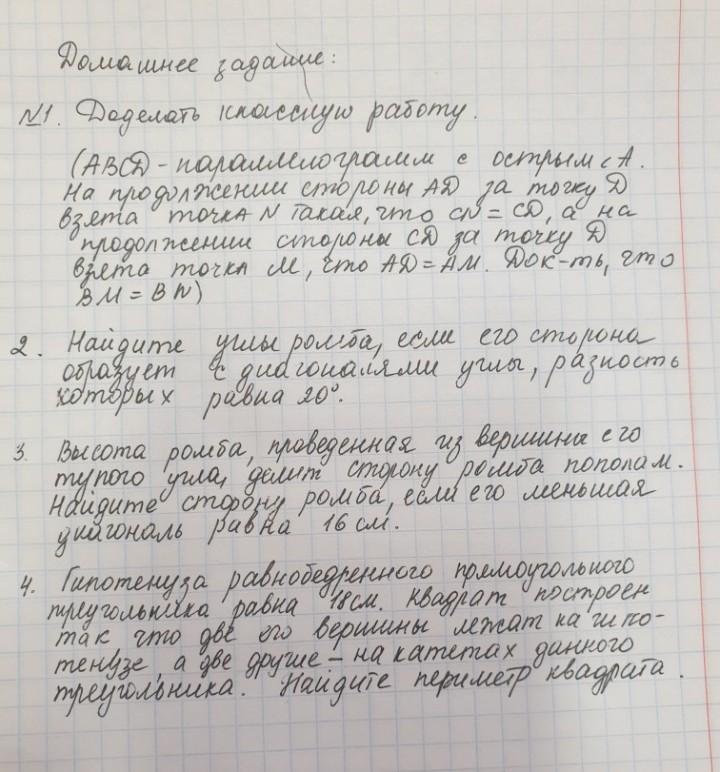 Домашнее задание:
№1. Доделать классную работу.
(ABCD - параллелограмм с острым ∠A.
На продолжении стороны AD за точку D
взята точка N такая, что CN = CD, а на
продолжении стороны CD за точку D
взята точка M, что AD = AM. Док-ть, что
BM = BN)
2. Найдите углы ромба, если его сторона
образует с диагоналями углы, разность
которых равна 20°.
3. Высота ромба, проведенная из вершины его
тупого угла, делит сторону ромба пополам.
Найдите сторону ромба, если его меньшая
диагональ равна 16 см.
4. Гипотенуза равнобедренного прямоугольного
треугольника равна 18см. Квадрат построен
так что две его вершины лежат на гипо-
тенузе, а две другие - на катетах данного
треугольника. Найдите периметр квадрата.